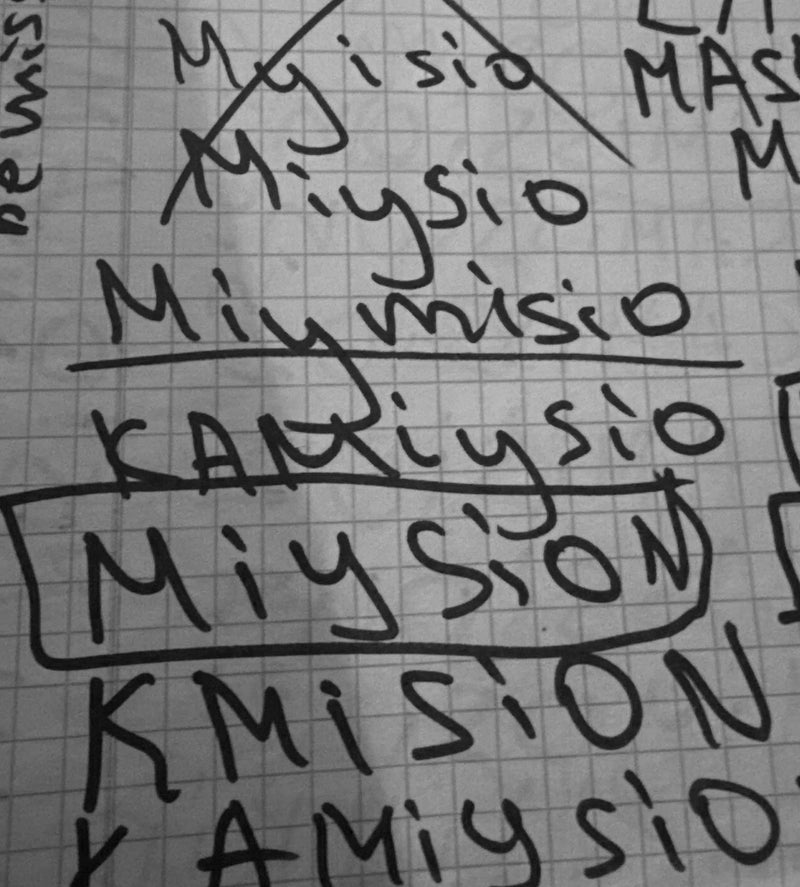 Myisio
MAS
Miysio
M
Miymisio
KAMiysio
MiySiON
KMiSiON
KAMiySiO